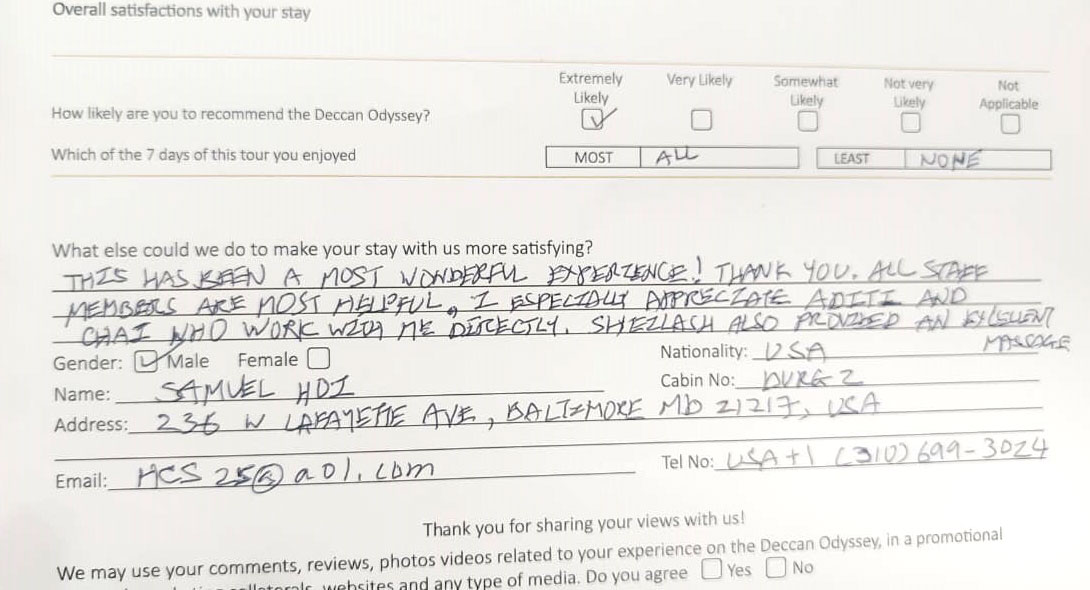 Overall satisfactions with your stay
Extremely Likely Very Likely Somewhat Likely Not very Likely Not Applicable
How likely are you to recommend the Deccan Odyssey?
Which of the 7 days of this tour you enjoyed MOST ALL LEAST NONE
What else could we do to make your stay with us more satisfying?
THIS HAS BEEN A MOST WONDERFUL EXPERIENCE! THANK YOU. ALL STAFF
MEMBERS ARE MOST HELPFUL, I ESPECIALLY APPRECIATE ADITI AND
CHAI WHO WORK WITH ME DIRECTLY. ALSO PROVIDED AN EXCELLENT
MASSAGE
Gender: Male Female Nationality: USA
Name: SAMUEL Cabin No: 2
Address: 236 W LAFAYETTE AVE, BALTIMORE MD 21217, USA
Email: HCS25@aol.com Tel No: USA +1 (310) 699-3024
Thank you for sharing your views with us!
We may use your comments, reviews, photos videos related to your experience on the Deccan Odyssey, in a promotional
websites and any type of media. Do you agree Yes No